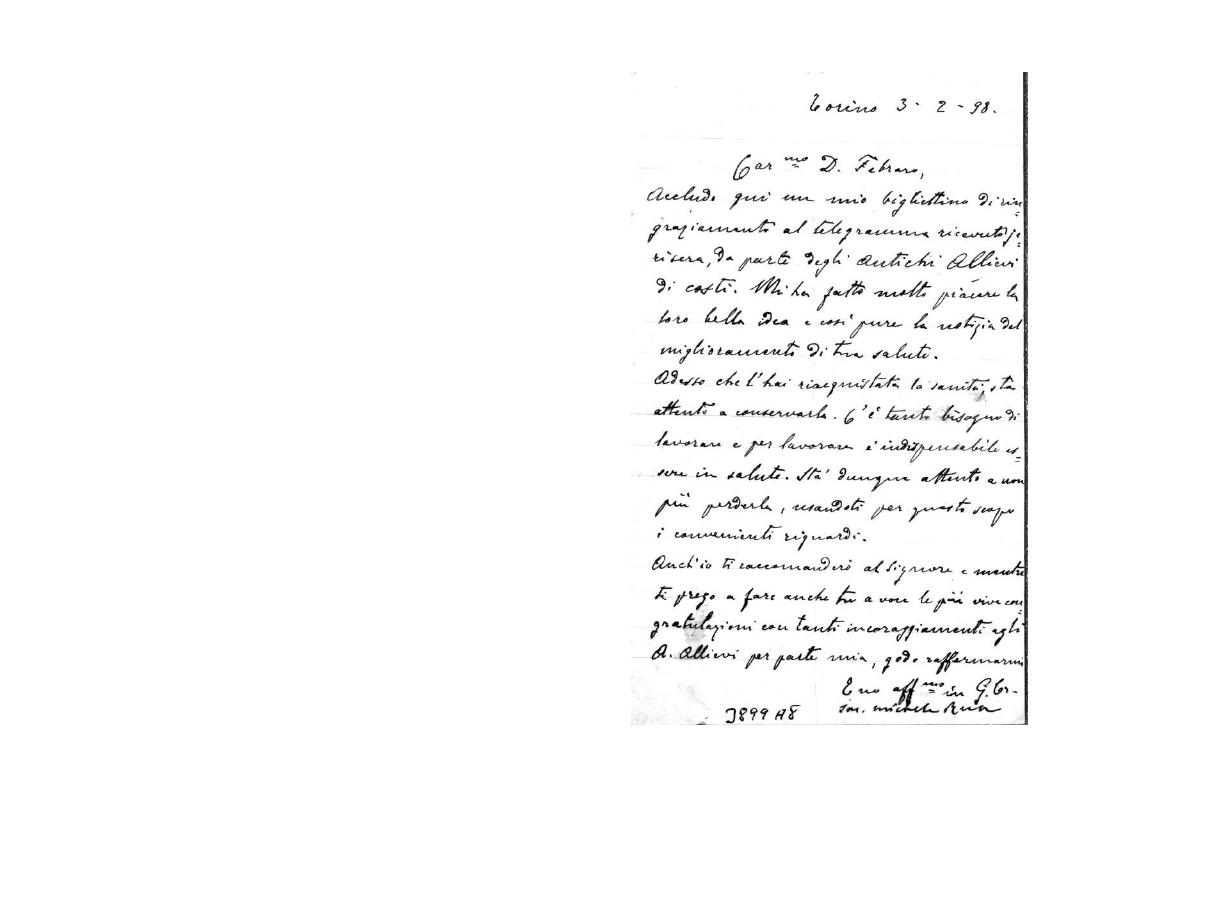 Torino 3 - 2 - 98.
Car.mo D. Febraro,
Accludo qui un mio bigliettino di rin=
graziamento al telegramma ricevuto je=
risera, da parte degli Antichi Allievi
di costì. Mi ha fatto molto piacere la
loro bella idea e così pure la notizia del
miglioramento di tua salute.
Adesso che l'hai riacquistata la sanità, sta
attento a conservarla. C'è tanto bisogno di
lavorare e per lavorare è indispensabile es=
sere in salute. Sta' dunque attento a non
più perderla, usandoti per questo scopo
i convenienti riguardi.
Anch'io ti raccomanderò al Signore e mentre
ti prego a fare anche tu a voce le più vive con=
gratulazioni con tanti incoraggiamenti agli
A. Allievi per parte mia, godo raffermarmi
Tuo aff.mo in G. Cr-
Sac. Michele Rua
3899 A8